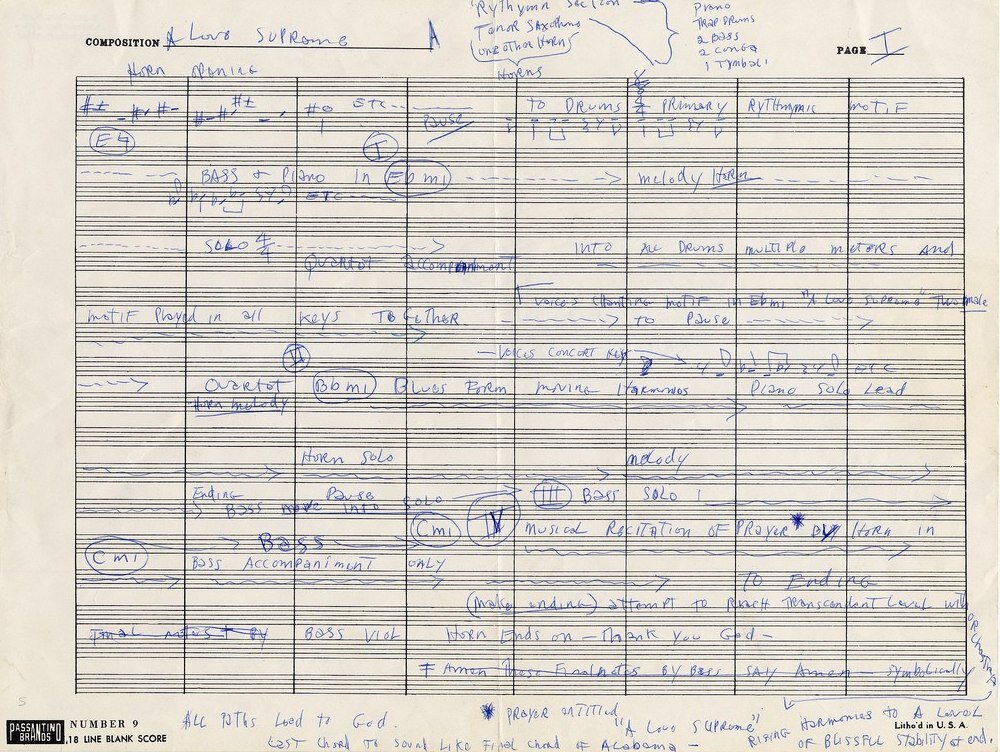 Rythymn Section
Tenor Saxophone
(one other Horn)
Horns
Piano
Trap Drums
2 Bass
2 Conga
1 Tymbali
COMPOSITION A Love Supreme A
PAGE I
Horn opening
ETC
PAUSE
TO DRUMS 4/4 PRIMARY RYTHYMIC MOTIF
E♮
I
BASS + Piano in Ebmi
melody Horn
ETC
SOLO 4/4
Quartet accompaniment
INTO ALL DRUMS MULTIPLE METERS AND
VOICES CHANTING MOTIF IN Ebmi "A Love Supreme" Two male
MOTIF Played in all Keys TOGETHER
to Pause
II
VOICES CONCERT KEY
ETC
Quartet Bbmi Blues Form moving Harmonies Piano Solo Lead
Horn melody
Horn Solo
melody
Ending Pause
Bass move into SOLO
III Bass Solo 1
Cmi IV Musical Recitation of Prayer * By Horn in
Cmi
Bass
Bass Accompaniment only
TO Ending
(Make ending) attempt to Reach Transcendent Level with
OR
Final notes + By Bass Viol Horn Ends on - Thank you God -
Amen These Final notes By Bass SAY Amen - Symbolically
ALL Paths Lead to God.
Last Chord to sound like Final chord of Alabama -
* Prayer entitled "A Love Supreme"
RISING Harmonies to A Level
of Blissful Stability at end.
PASSANTINO BRANDS
NUMBER 9
18 LINE BLANK SCORE
Litho'd in U. S. A.